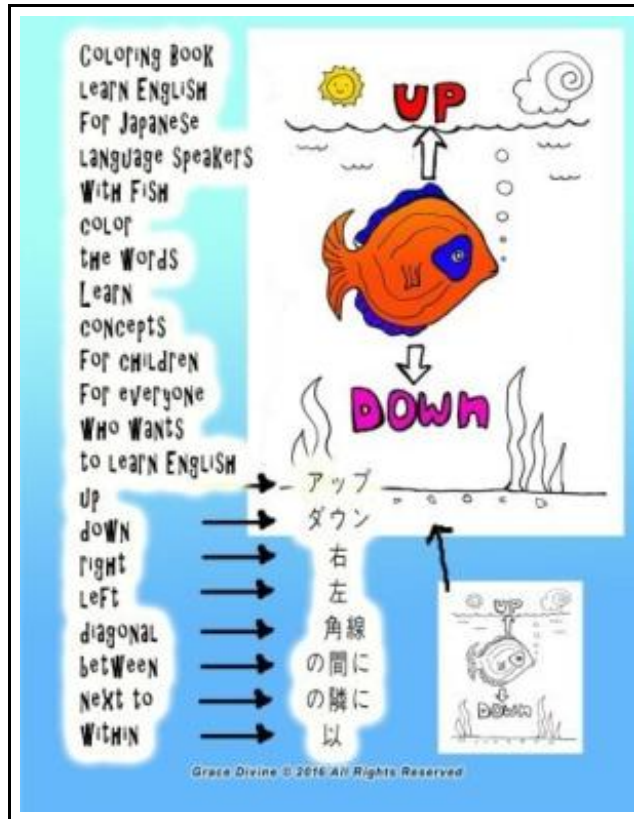 Coloring Book
Learn English
For Japanese
Language Speakers
With Fish
color
the Words
Learn
concepts
For children
For everyone
Who Wants
to Learn English
up
down
right
Left
diagonal
between
Next to
Within
アップ
ダウン
右
左
角線
の間に
の隣に
以
UP
DOWN
UP
DOWN
Grace Divine © 2016 All Rights Reserved